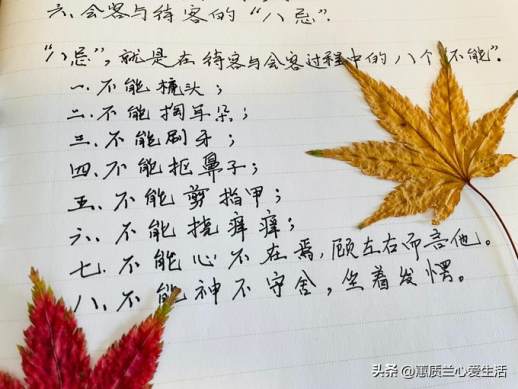 六、会客与待客的“八忌”.
“八忌”,就是在待客与会客过程中的八个“不能”.
一.不能梳头;
二.不能掏耳朵;
三.不能刷牙;
四.不能抠鼻子;
五.不能剪指甲;
六.不能挠痒痒;
七.不能心不在焉,顾左右而言他。
八.不能神不守舍,坐着发愣。
头条 @蕙质兰心爱生活